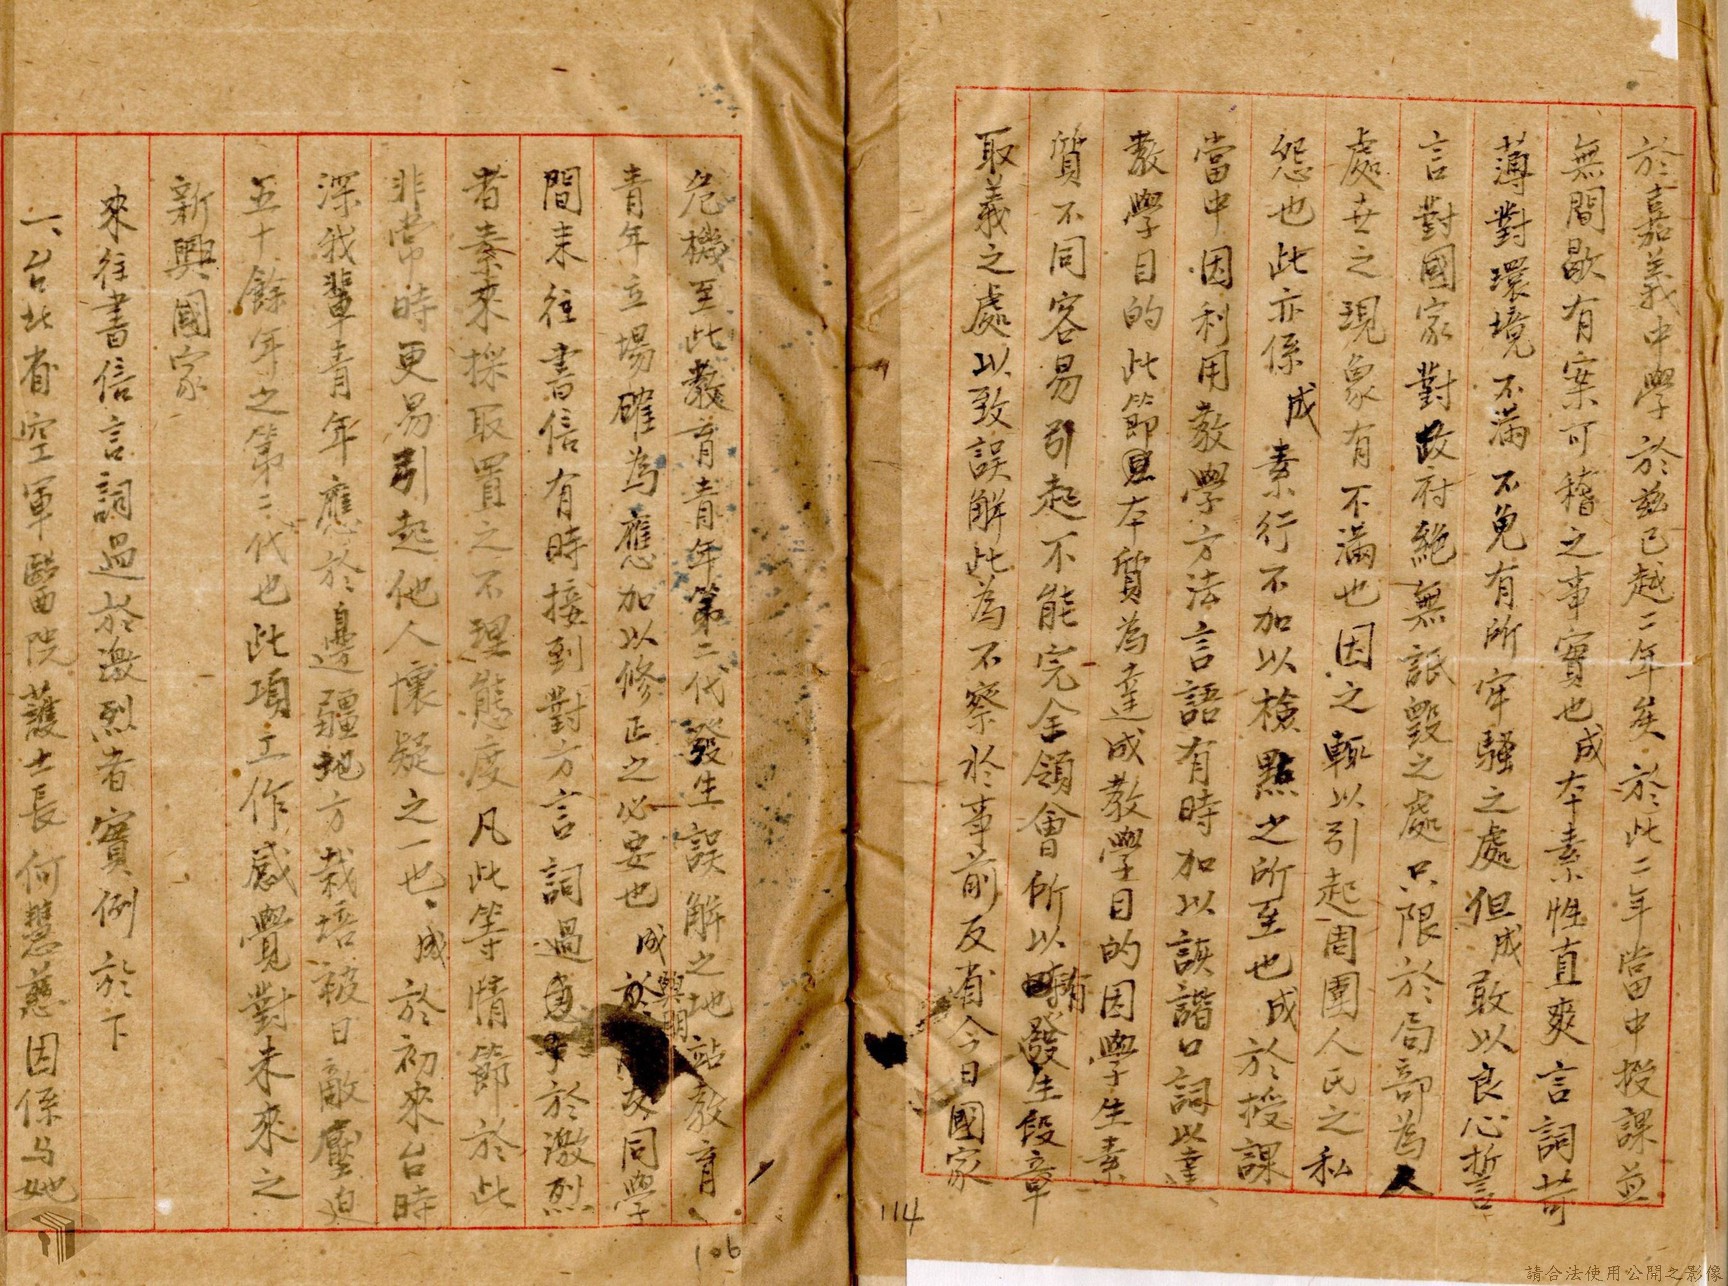 於嘉義中學於茲已越二年矣於此二年當中授課並
無間歇有案可稽之事實也成本素性直爽言詞苛
薄對環境不滿不免有所牢騷之處但成敢以良心誓言
言對國家對政府絕無詆毀之處只限於局部為人
處世之現象有不滿也因之輒以引起周圍人民之私
怨也此亦係成素行不加以檢點之所至也成於授課
當中因利用教學方法言語有時加以詼諧口詞以達
教學目的此節本質為達成教學目的因學生素
質不同容易引起不能完全領會所以有時發生段章
取義之處以致誤解此為不察於事前反省今日國家
114
危機至此教育青年第二代發生誤解之地站教育
青年立場確為應加以修正之必要也成於與朋友同學
間來往書信有時接到對方言詞過於激烈
者素來採取置之不理態度凡此等情節於此
非常時更易引起他人懷疑之一也成於初來台時
深我輩青年應於邊疆地方栽培被日敵壓迫
五十餘年之第二代也此項工作感覺對未來之
新興國家
來往書信言詞過於激烈者實例於下
一、台北省空軍醫院護士長何慧慈因係与她
106
請合法使用公開之影像